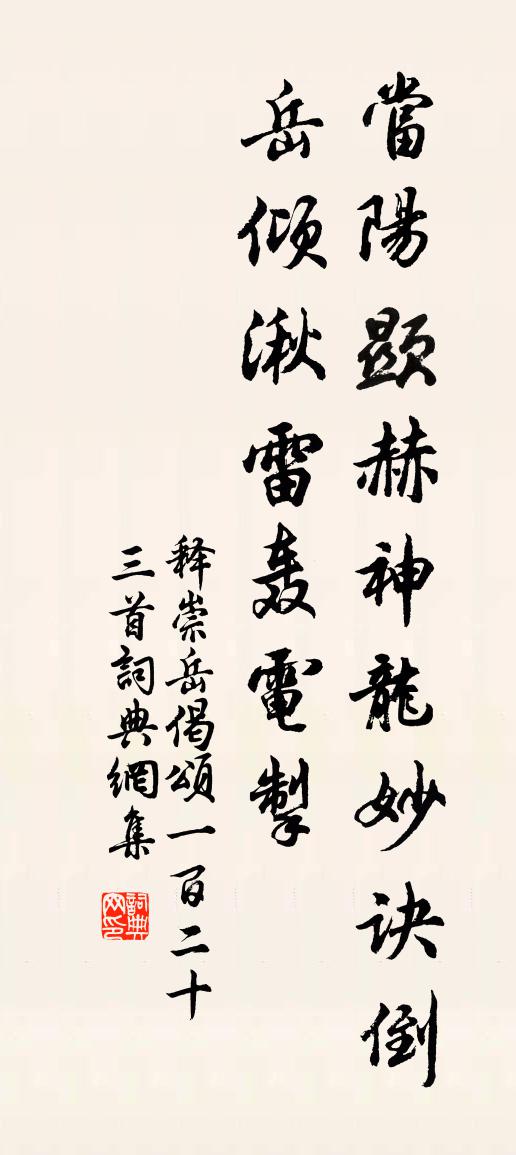 當陽顯赫神龍妙诀倒
岳倾湫雷轰電掣
释崇岳偈頌一百二十
三首詞典網集
詞典
网印